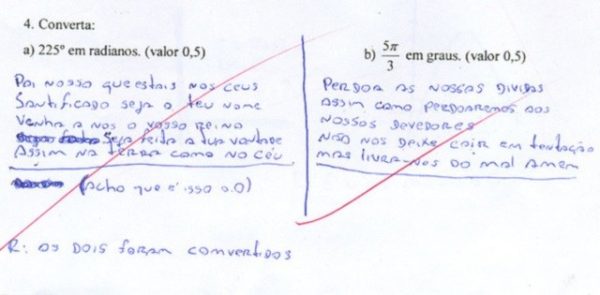 4. Converta:
a) 225º em radianos. (valor 0,5)
Pai nosso que estais nos ceus
Santificado seja o teu nome
Venha a nos o vosso reino
seja feita a tua vontade
Assim na terra como no céu
(acho que é isso o.O)
b) 5π/3 em graus. (valor 0,5)
Perdoa as nossas dividas
assim como perdoaremos aos
nossos devedores
Não nos deixe cair em tentação
mas livra-nos do mal amem
R: os dois foram comvertidos